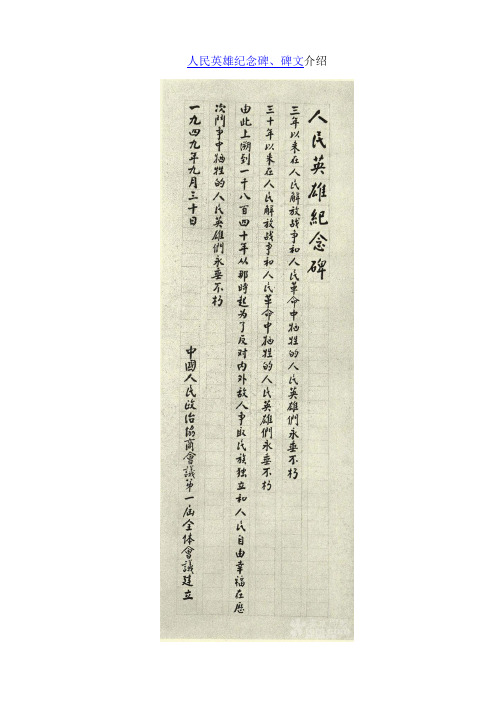 人民英雄纪念碑、碑文介绍
人民英雄紀念碑
三年以来在人民解放战争和人民革命中牺牲的人民英雄們永垂不朽
三十年以来在人民解放战争和人民革命中牺牲的人民英雄們永垂不朽
由此上溯到一千八百四十年从那時起为了反对内外敌人争取民族独立和人民自由幸福在歷
次鬥争中牺牲的人民英雄們永垂不朽
一九四九年九月三十日
中國人民政治協商會議第一屆全体會議建立